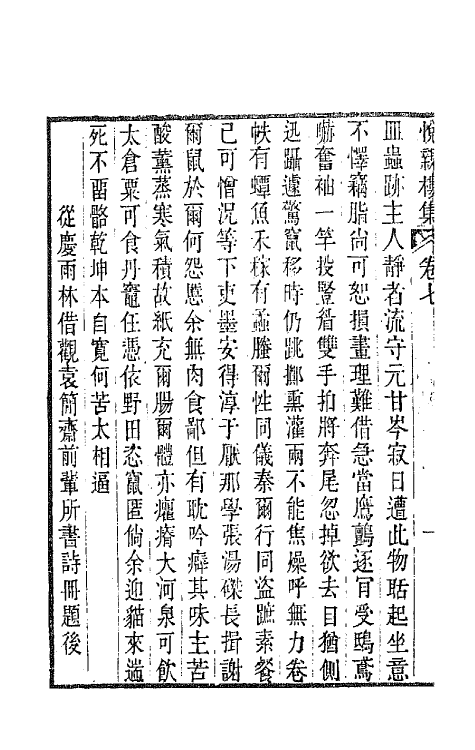 悅親樓集 卷七 一
皿蟲跡主人靜者流守元甘岑寂日遭此物聒起坐意
不懌竊脂尚可恕損畫理難借急當鷹鸇逐肎受鴟鳶
嚇奮袖一竿投豎㨨雙手拍將奔尾忽掉欲去目猶側
迅躡遽驚竄移時仍跳擲熏灌兩不能焦燥呼無力卷
帙有蟫魚禾稼有蟊螣爾性同儀秦爾行同盜蹠素餐
已可憎況等下吏墨安得淳于厭那學張湯磔長揖謝
爾鼠於爾何怨慝余無肉食鄙但有耽吟癖其味主苦
酸薰蒸寒氣積故紙充爾腸爾體亦癯瘠大河泉可飲
太倉粟可食丹竈任憑依野田恣竄匿倘余迎貓來遄
死不畱骼乾坤本自寬何苦太相逼
從慶雨林借觀袁簡齋前輩所書詩冊題後